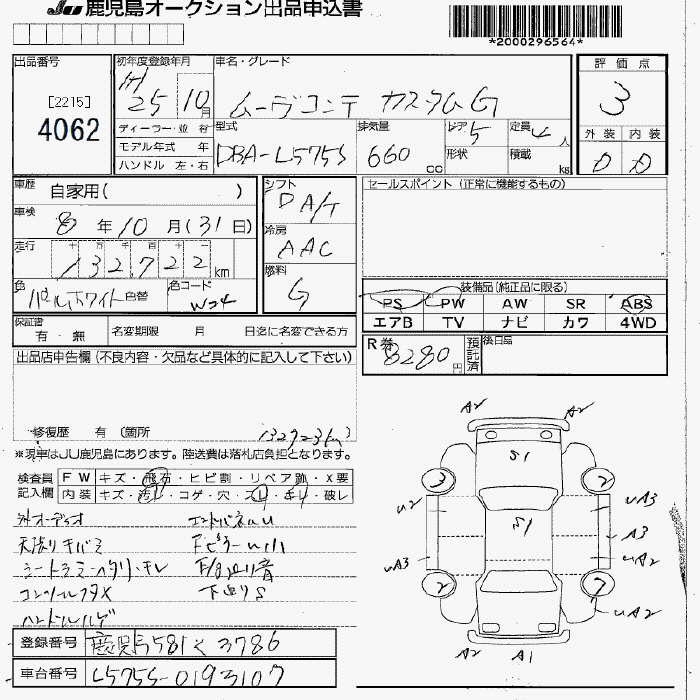 JU 鹿児島オークション出品申込書
*2000296564*
出品番号
[2215]
4062
初年度登録年月
H25 10月
車名・グレード
ムーヴコンテ カスタムG
評価点
3
外装 内装
D D
ディーラー・並 行
モデル年式 年
ハンドル 左・右
型式
DBA-L575S
排気量
660 cc
ドア 5
形状
定員 4 人
積載 kg
車歴
自家用( )
車検
8年10月(31日)
走行
十 万 千 百 十 一
132722 km
色
パールホワイト 色替
色コード
W24
シフト
DA/T
冷房
AAC
燃料
G
セールスポイント (正常に機能するもの)
装備品(純正品に限る)
PS PW AW SR ABS
エアB TV ナビ カワ 4WD
保証書
有・無
名変期限 月 日迄に名変できる方
R券
8280円
預託済
後日品
出品店申告欄(不良内容・欠品など具体的に記入して下さい)
修復歴 有 (箇所 )
132723km
※現車はJU鹿児島にあります。陸送費は落札店負担となります。
検査員記入欄
FW キズ・飛石・ヒビ割・リペア跡・X要
内装 キズ・汚レ・コゲ・穴・スレ・キレ・破レ
外オーディオ
天張りキバミ
下廻りS
登録番号 鹿児島581 く 3786
車台番号 L575S-0193107
A2 A2
S1
3 2
U2 UA3
S1
A3
UA3 UA2
2 7
UA2
A2 A1